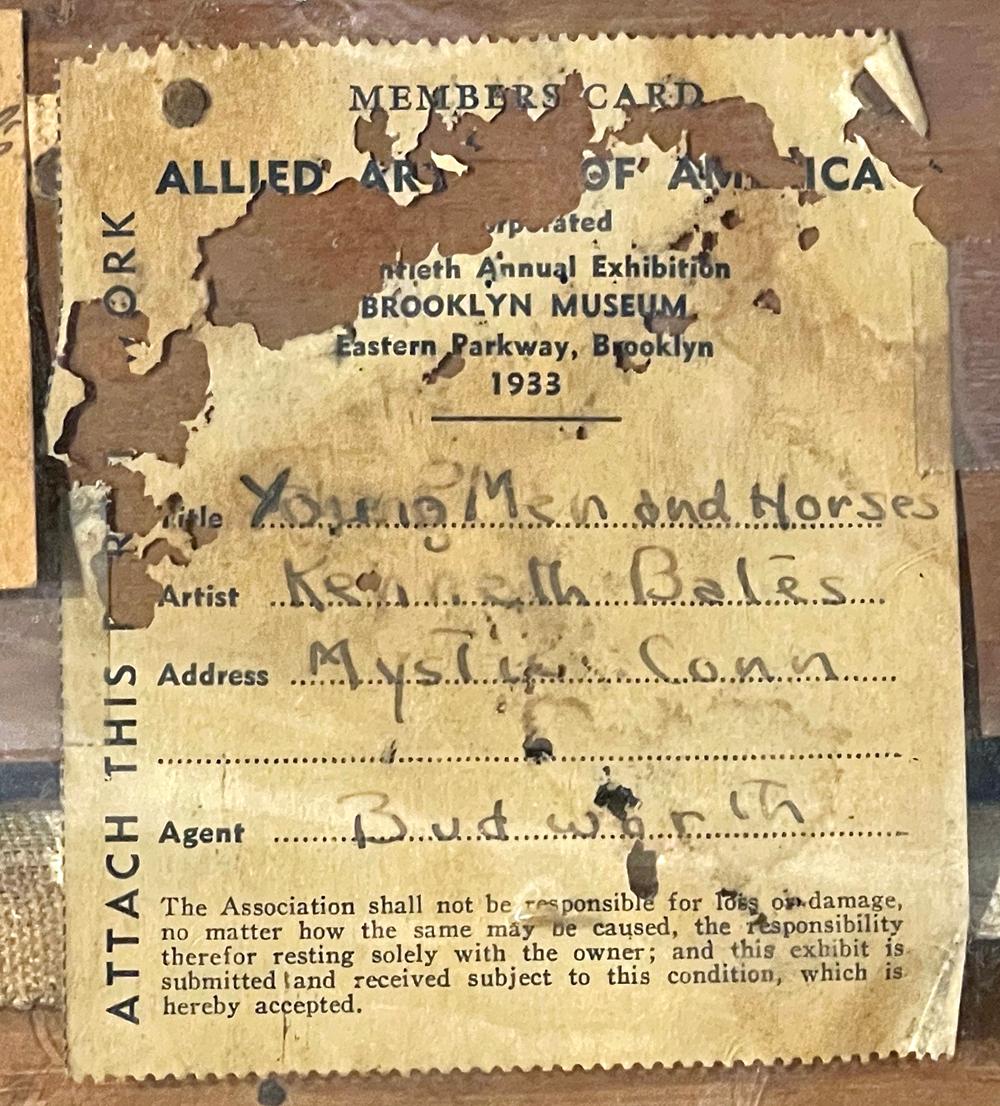 MEMBERS CARD
ALLIED OF
Annual Exhibition
BROOKLYN MUSEUM
Eastern Parkway, Brooklyn
1933
Title Young Men and Horses
Artist Kenneth Bates
Address Mystic Conn
Agent Budworth
The Association shall not be responsible for loss or damage,
no matter how the same may be caused, the responsibility
therefor resting solely with the owner; and this exhibit is
submitted and received subject to this condition, which is
hereby accepted.
ATTACH THIS